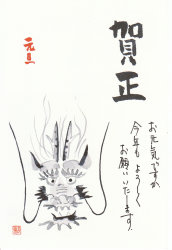 賀正
お元気ですか
今年もよろしく
お願いいたします。
元旦